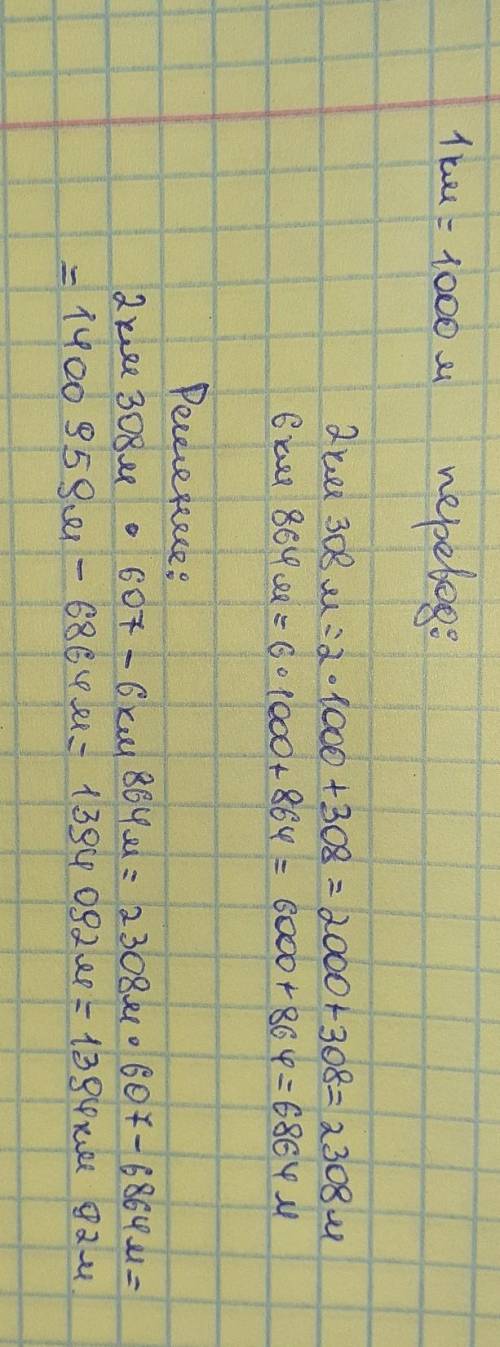 1 км = 1000 м перевод:
2 км 308 м = 2•1000 + 308 = 2000 + 308 = 2308 м
6 км 864 м = 6•1000 + 864 = 6000 + 864 = 6864 м
Решение:
2 км 308 м • 607 - 6 км 864 м = 2308 м • 607 - 6864 м =
= 1400 959 м - 6864 м = 1394 092 м = 1394 км 92 м.